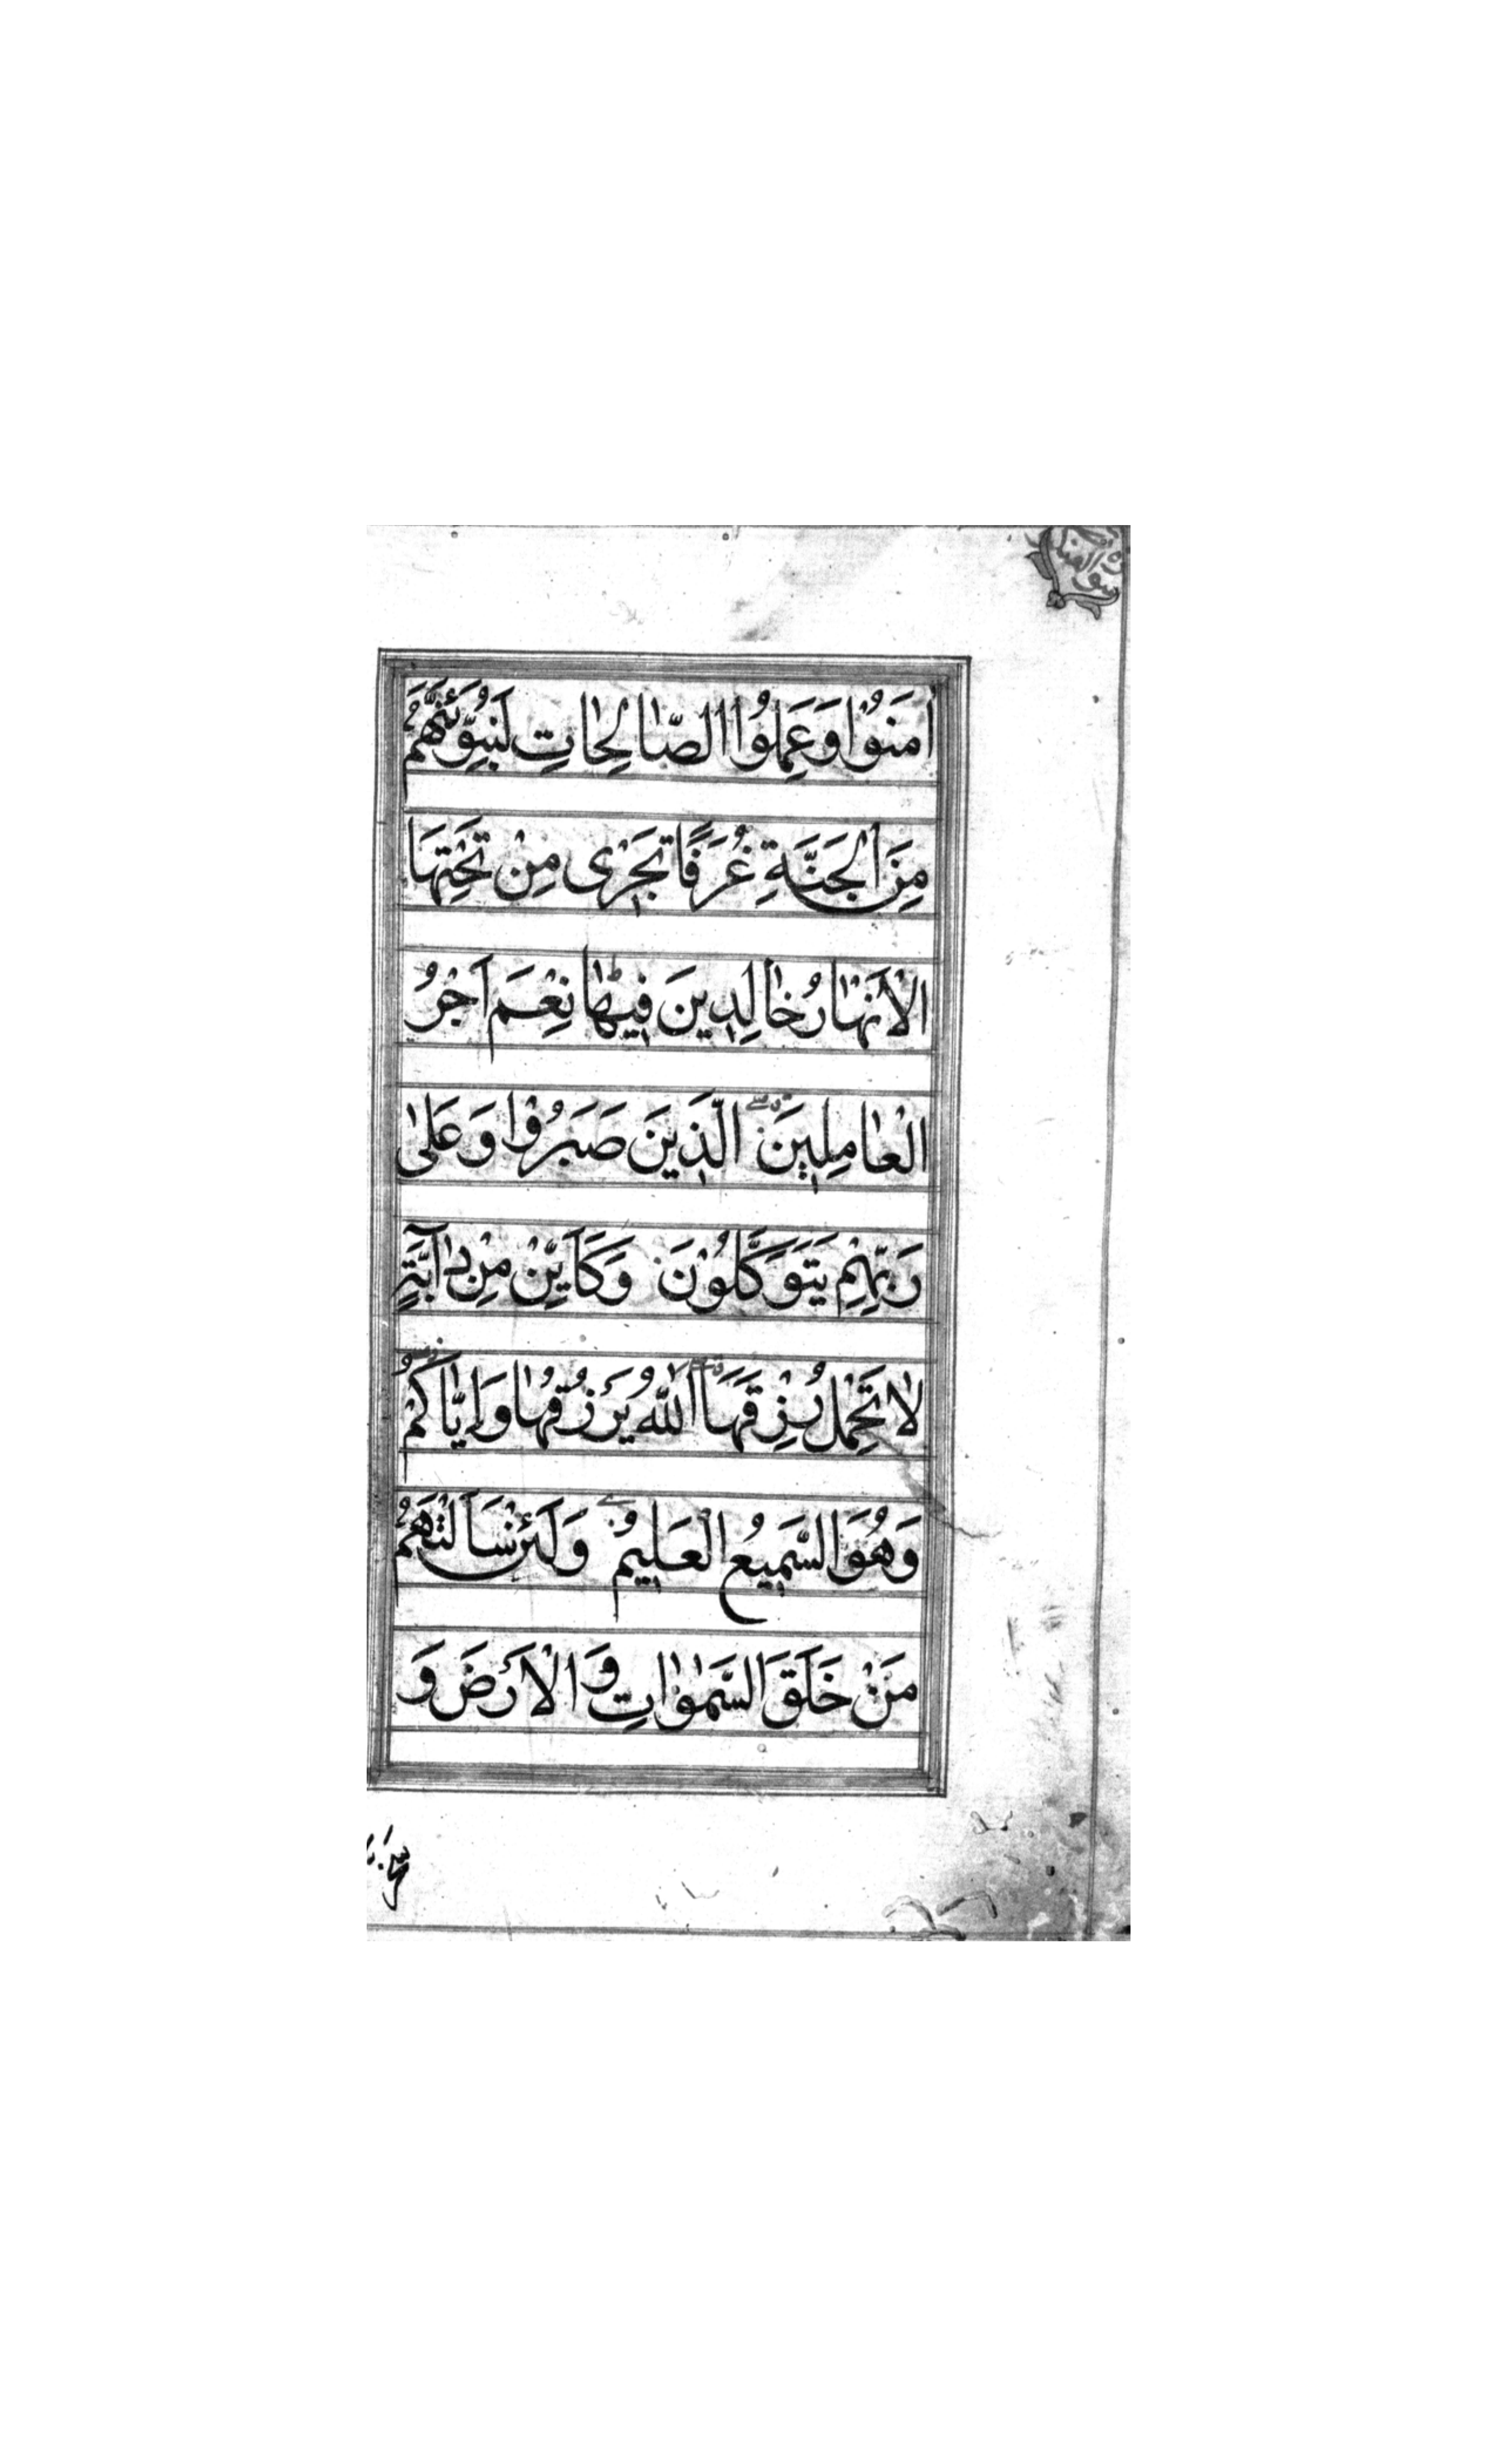 اٰمَنُوْا وَعَمِلُوا الصّٰالِحٰاتِ لَنُبَوِّئَنَّهُمْ
مِنَ الْجَنَّةِ غُرَفًا تَجْرٖى مِنْ تَحْتِهَا
الْاَنْهٰارُ خٰالِدٖينَ فٖيهٰا نِعْمَ اَجْرُ
الْعٰامِلٖينَ الَّذٖينَ صَبَرُوْا وَعَلٰى
رَبِّهِمْ يَتَوَكَّلُوْنَ وَكَاَيِّنْ مِنْ دٰآبَّةٍ
لٰا تَحْمِلُ رِزْقَهَا اَللّٰهُ يَرْزُقُهٰا وَاِيّٰاكُمْ
وَهُوَ السَّمٖيعُ الْعَلٖيمُ وَلَئِنْ سَاَلْتَهُمْ
مَنْ خَلَقَ السَّمٰوٰاتِ وَالْاَرْضَ وَ